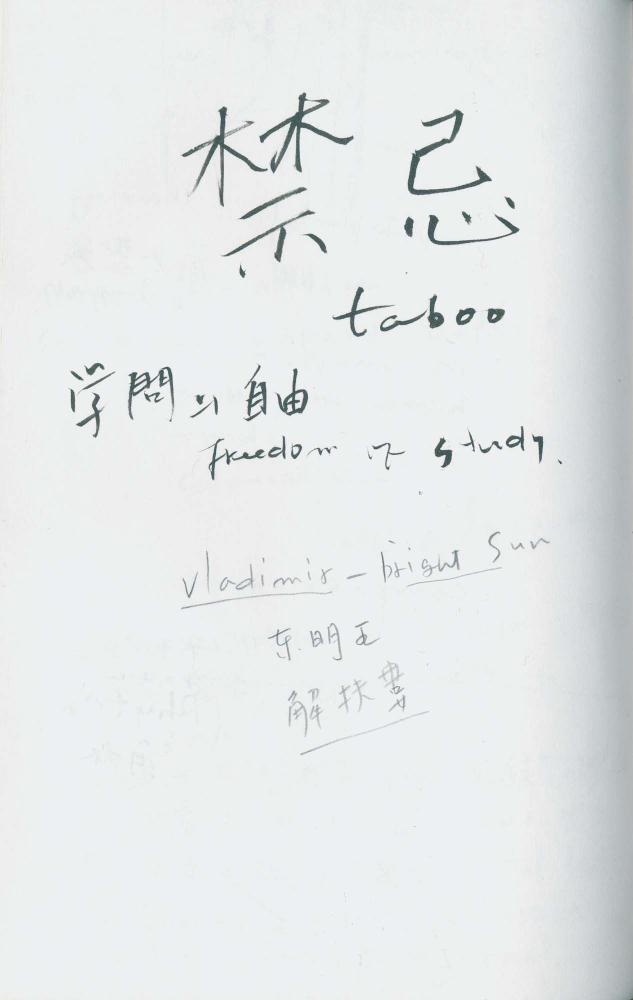 禁忌
taboo
学問의 自由
freedom of study.
vladimir - bright sun
东明王
解扶婁